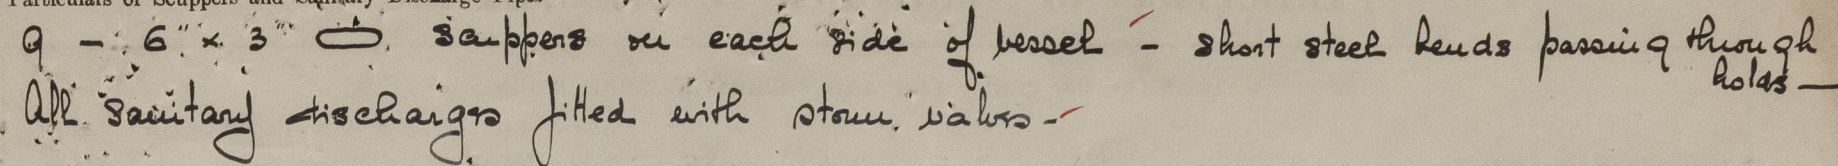 Particulars of Scuppers and Sanitary Discharge Pipes
9 - 6" x 3" scuppers on each side of vessel - short steel bends passing through
holds -
All sanitary discharges fitted with storm valves -